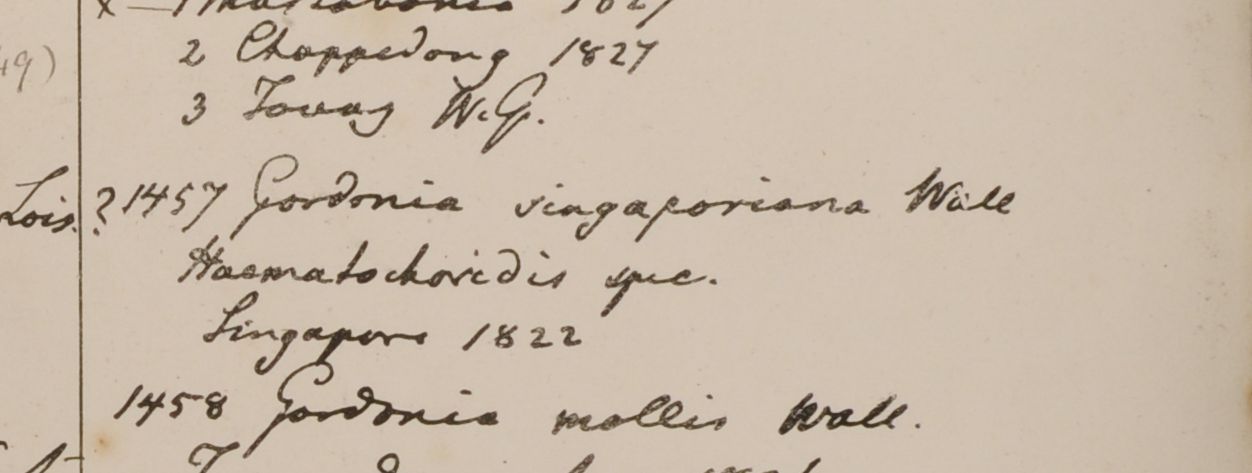 2 Choppedong 1827
49)
3 Tavay W.G.
Lois. ? 1457 Gordonia singaporiana Wall
Haematocharidis spec.
Singapore 1822
1458 Gordonia mollis Wall.